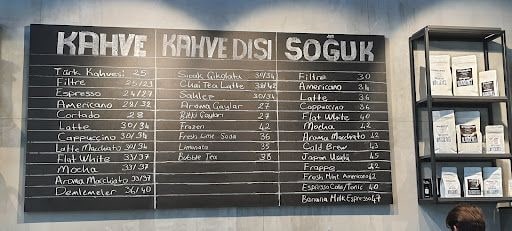 KAHVE
Türk Kahvesi 25
Filtre 25/23
Espresso 24/27
Americano 29/32
Cortado 28
Latte 30/34
Cappuccino 30/34
Latte Macchiato 30/34
Flat White 33/37
Mocha 33/37
Aroma Macchiato 33/37
Demlemeler 36/40
KAHVE DIŞI
Sıcak Çikolata 30/34
Chai Tea Latte 38/42
Sahlep 30/34
Aroma Çaylar 27
Bitki Çayları 27
Frozen 42
Fresh Lime Soda
Limonata 35
Bubble Tea 38
SOĞUK
Filtre 30
Americano 34
Latte 36
Cappuccino 36
Flat White 40
Mocha 42
Aroma Macchiato 42
Cold Brew 43
Japon Usulü 45
Frappe
Fresh Mint Americano 42
Espresso Cola/Tonic 40
Banana Milk Espresso 47